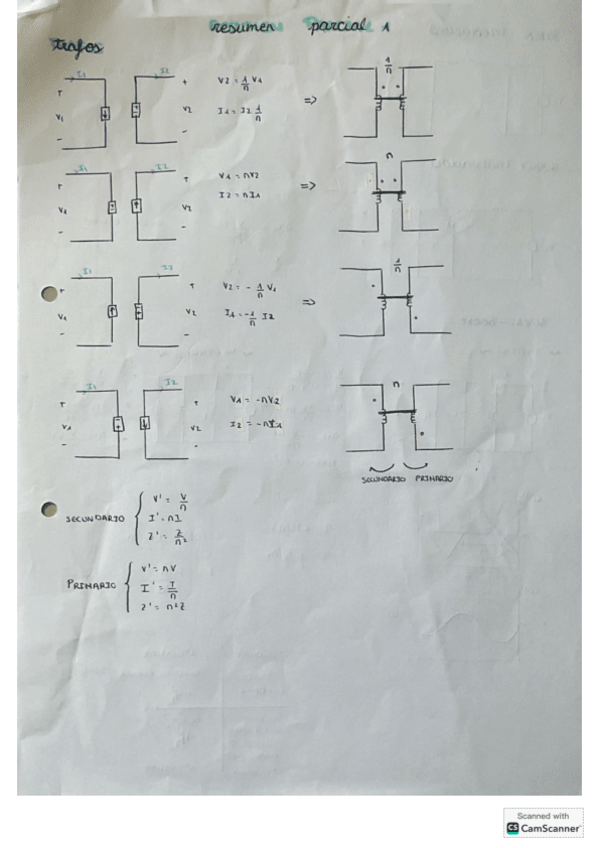 resumen parcial 1
trafos
I1 I2
+ +
V1 V2
- -
V2 = 1/n V1
I1 = I2 1/n
=>
1/n
I1 I2
+ +
V1 V2
- -
V1 = nV2
I2 = nI1
=>
n
I1 I2
+ +
V1 V2
- -
V2 = - 1/n V1
I1 = -1/n I2
=>
1/n
I1 I2
+ +
V1 V2
- -
V1 = -nV2
I2 = -nI1
n
SECUNDARIO PRIMARIO
SECUNDARIO { V' = V/n
I' = nI
Z' = Z/n²
PRIMARIO { V' = nV
I' = I/n
Z' = n²Z
Scanned with
CS CamScanner